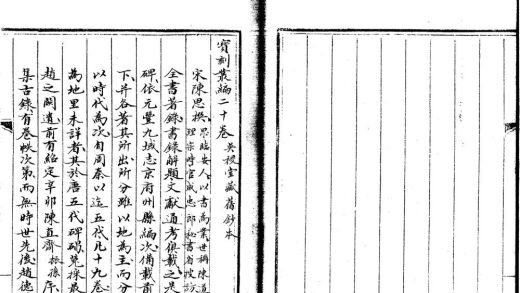 寶刻叢編二十卷 吳稷堂藏舊鈔本
宋陳思撰思臨安人以書為業世稱陳道
理宗時官成忠郎秘書省搜訪
全書著錄書錄解題文獻通考俱載之是
碑依元豐九域志京府州縣編次備載前
下并各著其所出所分雖以地為主而分
以時代為次自周秦以迄五代凡十九卷
為地里未詳者其於唐五代碑碣見採最
趙之闕遺前有紹定辛卯陳直齋振孫序
集古錄有卷帙次第而無時世先後趙德